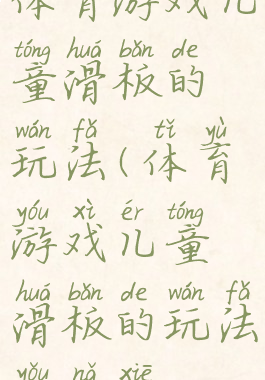 体育游戏儿
tóng huá bǎn de
童滑板的
wán fǎ tǐ yù
玩法(体育
yóu xì ér tóng
游戏儿童
huá bǎn de wán fǎ
滑板的玩法
yǒu nǎ xiē